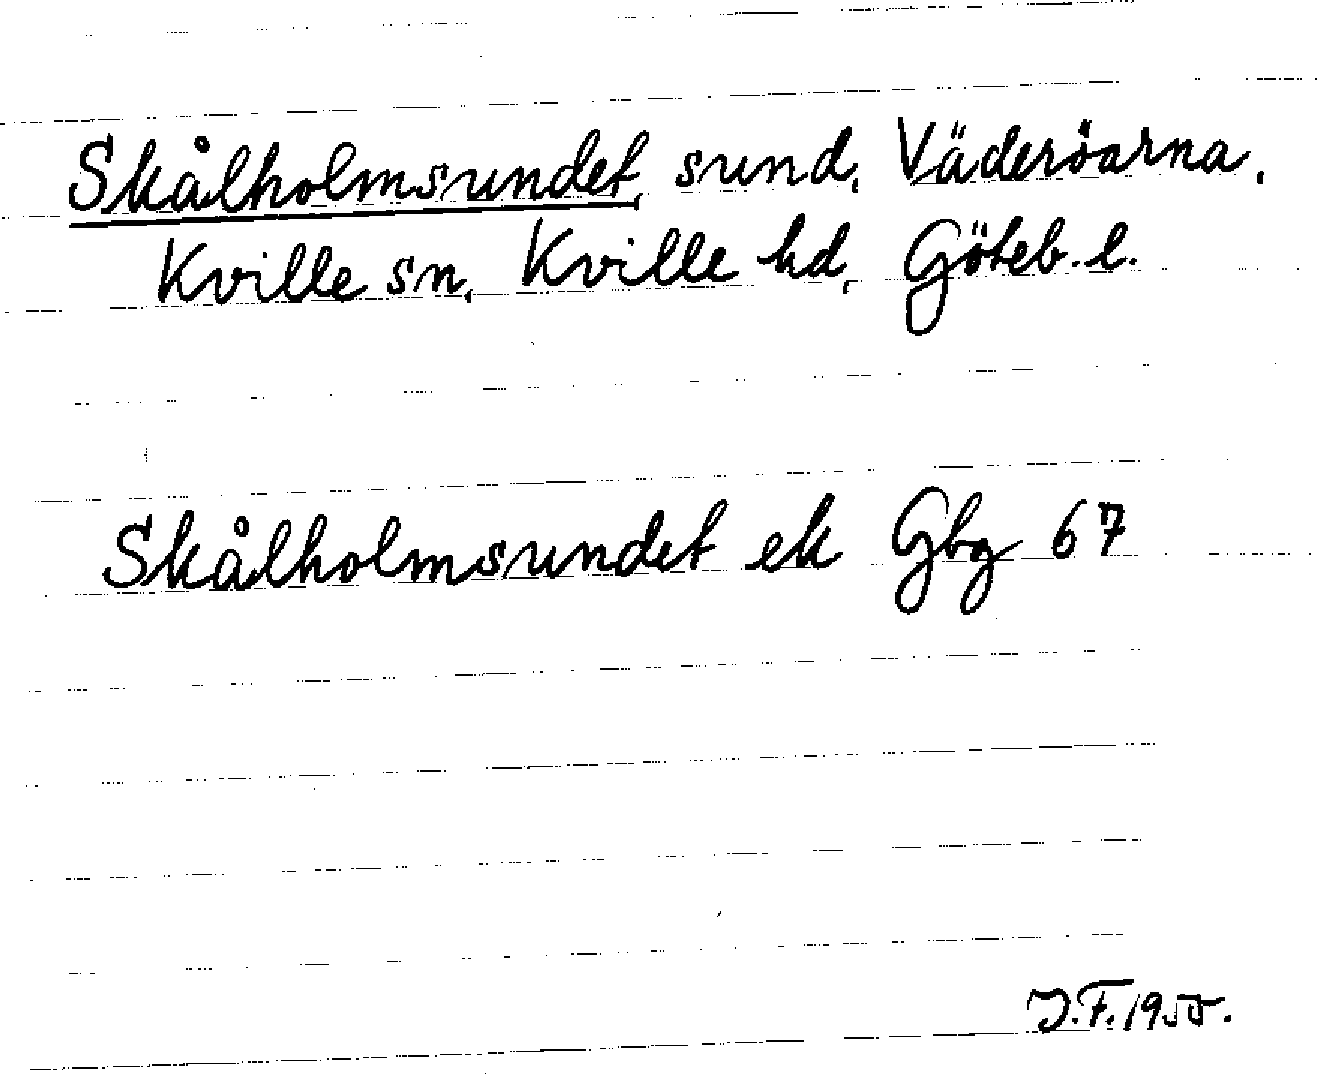 Skålholmsundet, sund, Väderöarna,
Kville sn, Kville hd, Göteb. l.
Skålholmsundet ek Gbg 67
J.F. 1955.